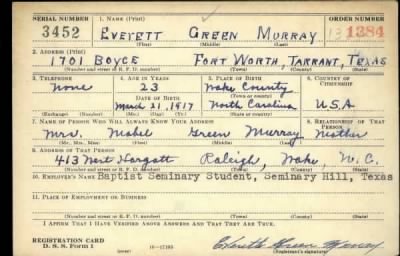 SERIAL NUMBER 1. NAME (Print) ORDER NUMBER
3452 EVERETT GREEN MURRAY 1384
(First) (Middle) (Last)
2. ADDRESS (Print)
1701 BOYCE FORT WORTH, TARRANT, TEXAS
(Number and street or R. F. D. number) (Town) (County) (State)
3. TELEPHONE 4. AGE IN YEARS 5. PLACE OF BIRTH 6. COUNTRY OF CITIZENSHIP
None 23 Wake County
DATE OF BIRTH (Town or county)
March 21, 1917 North Carolina U.S.A
(Exchange) (Number) (Mo.) (Day) (Yr.) (State or country)
7. NAME OF PERSON WHO WILL ALWAYS KNOW YOUR ADDRESS 8. RELATIONSHIP OF THAT PERSON
Mrs. Mabel Green Murray Mother
(Mr., Mrs., Miss) (First) (Middle) (Last)
9. ADDRESS OF THAT PERSON
413 West Hargett Raleigh, Wake, N.C.
(Number and street or R. F. D. number) (Town) (County) (State)
10. EMPLOYER'S NAME Baptist Seminary Student, Seminary Hill, Texas
11. PLACE OF EMPLOYMENT OR BUSINESS
(Number and street or R. F. D. number) (Town) (County) (State)
I AFFIRM THAT I HAVE VERIFIED ABOVE ANSWERS AND THAT THEY ARE TRUE.
REGISTRATION CARD
D. S. S. Form 1 (over) 16-17105 Everett Green Murray
(Registrant's signature)